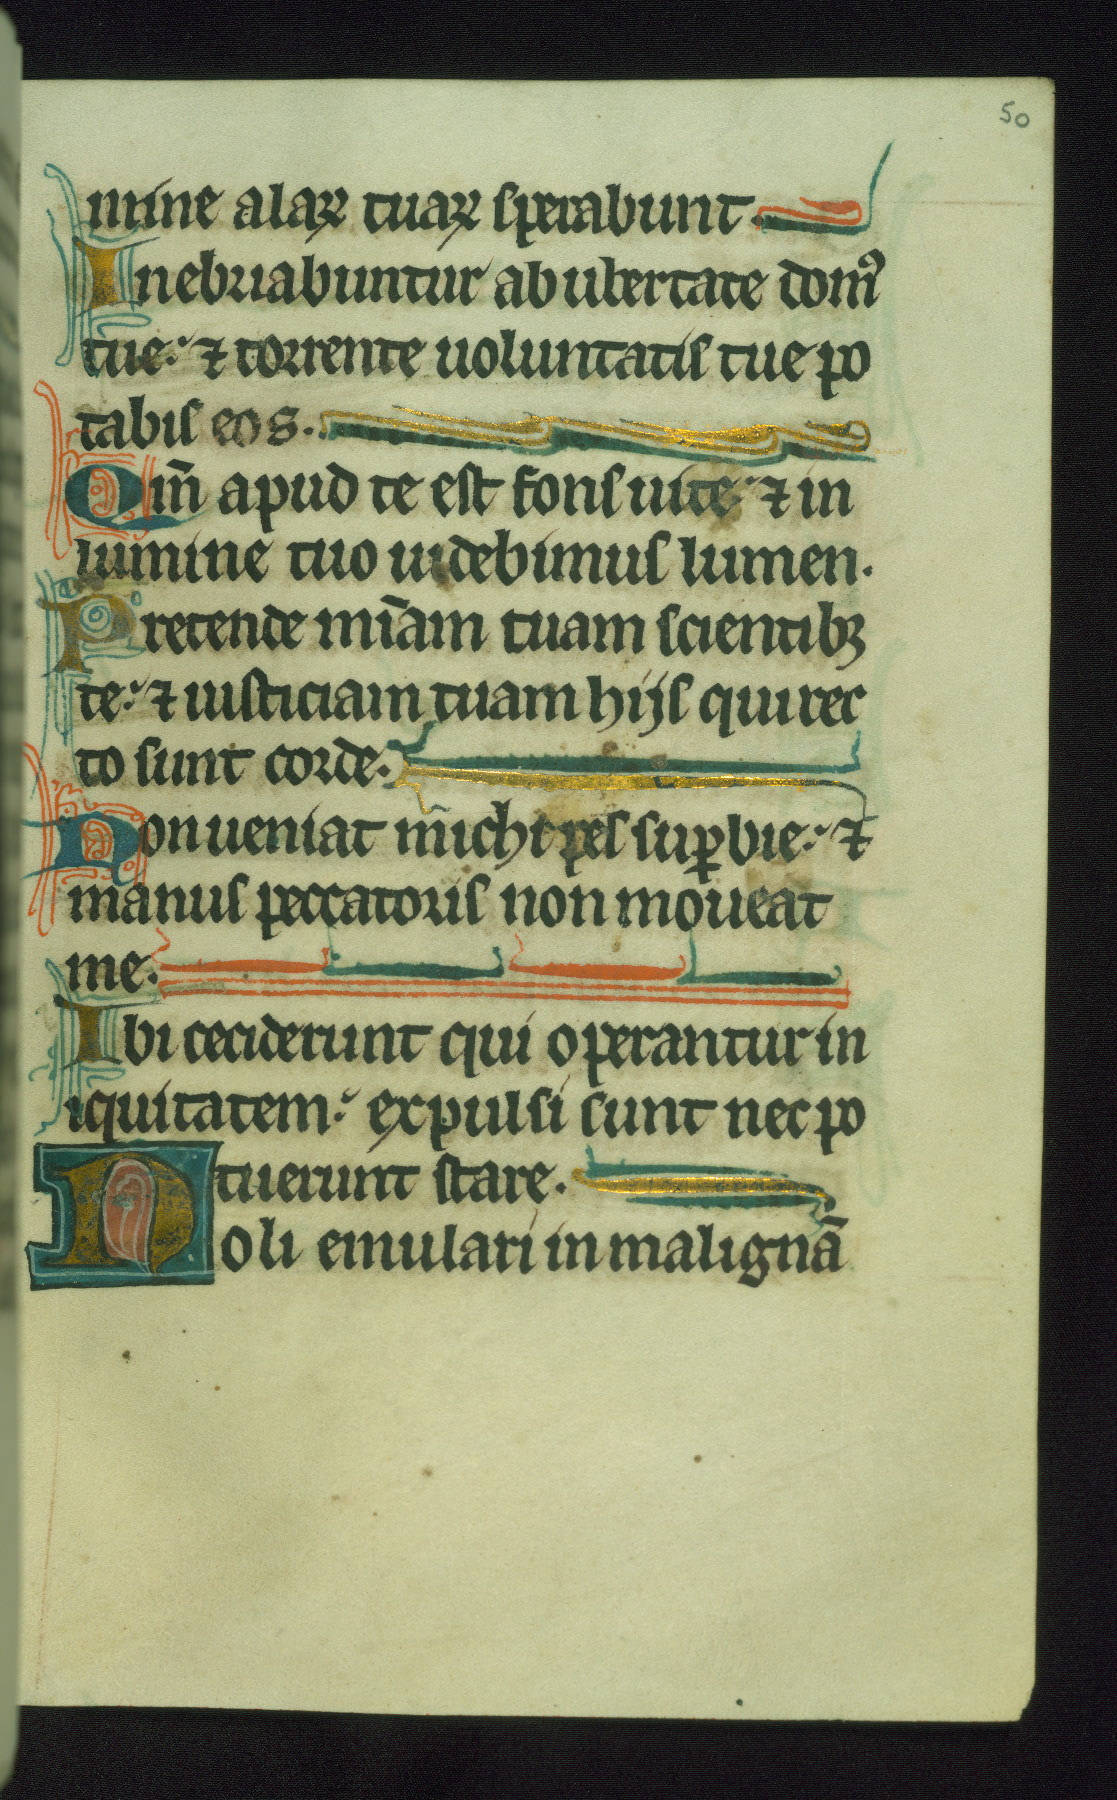 50
mine alaꝝ tuaꝝ sperabunt.
Inebriabuntur ab ubertate domꝰ
tue: ⁊ torrente uoluntatis tue po
tabis eos.
Qm̄ apud te est fons uite: ⁊ in
lumine tuo uidebimus lumen.
Pretende mīam tuam scientibꝫ
te: ⁊ iusticiam tuam hijs qui rec
to sunt corde.
Non ueniat michi pes suꝑbie: ⁊
manus peccatoris non moueat
me.
Ibi ceciderunt qui operantur in
iquitatem: expulsi sunt nec po
tuerunt stare.
Noli emulari in malignā